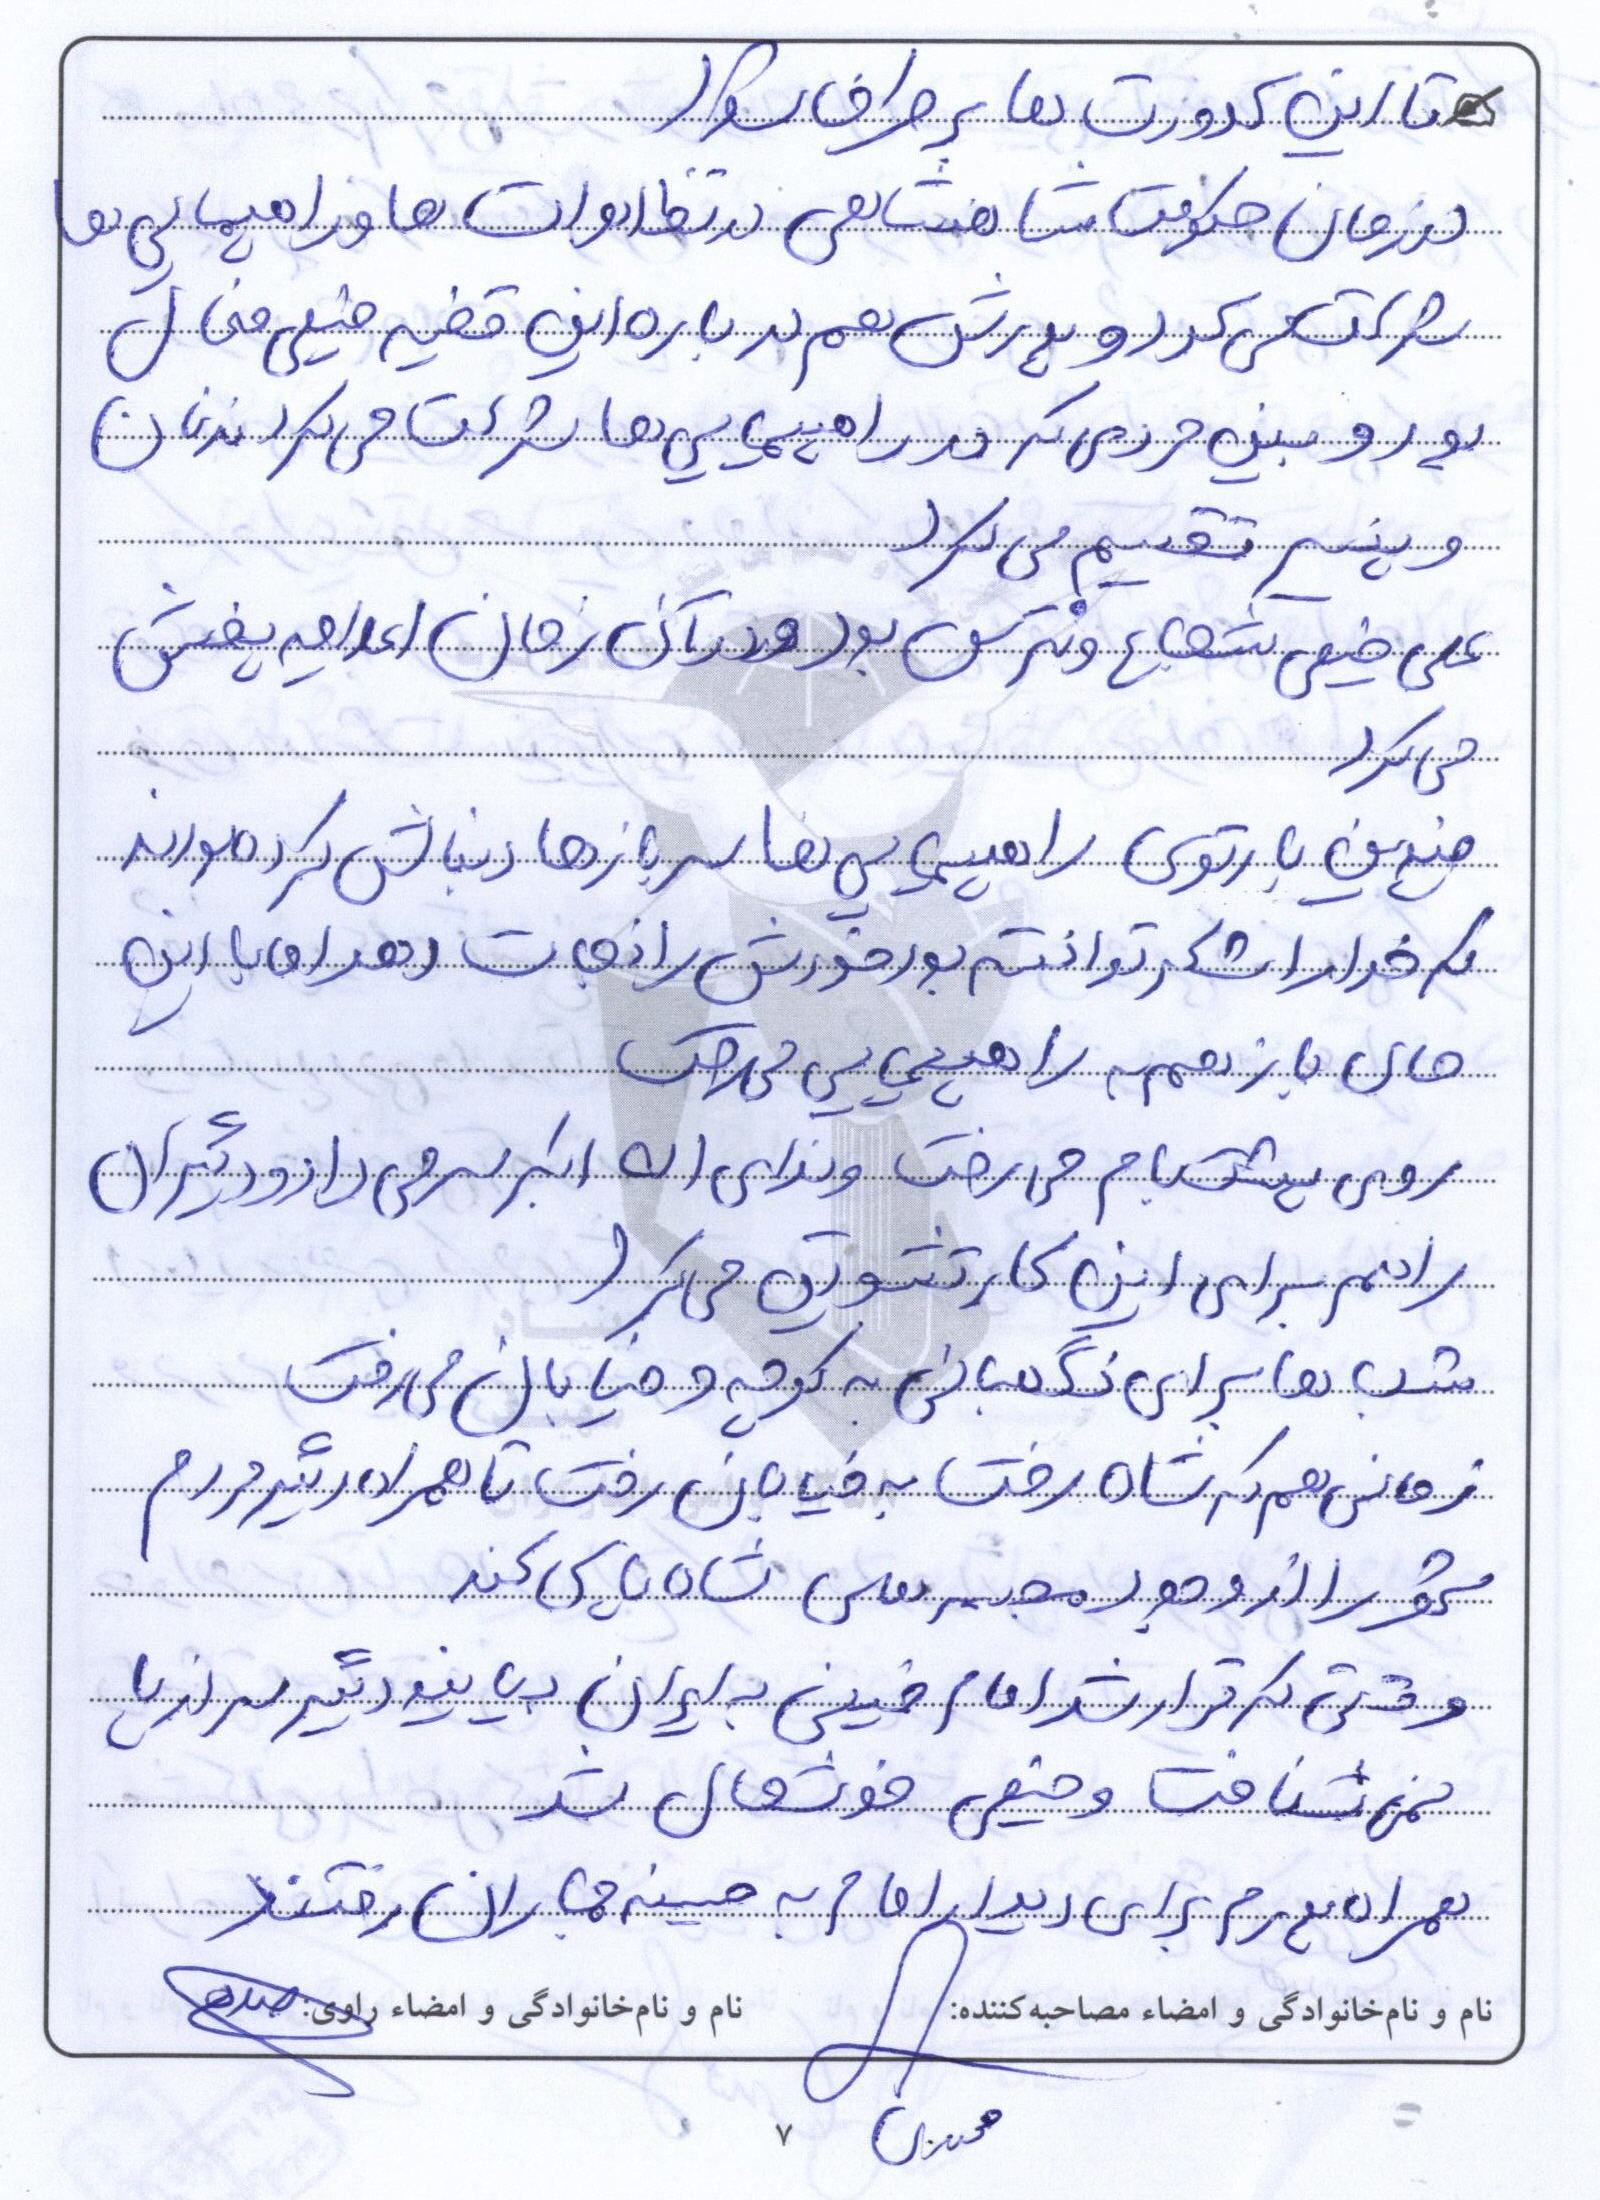 تا این کدورت ها برطرف شود
در زمان حکومت شاهنشاهی در تظاهرات ها و راهپیمایی ها
شرکت می کرد و پدرش هم در باره این قضیه خیلی فعال
بود و بین مردمی که در راهپیمایی ها شرکت می کردند نان
و پنیر تقسیم می کرد
علی خیلی شجاع و نترس بود در آن زمان اعلامیه پخش
می کرد
چندین بار توی راهپیمایی ها سربازها دنبالش کرده بودند
که خدا را شکر توانسته بود خودش را نجات دهد اما با این
حال باز هم به راهپیمایی می رفت
روی پشت بام می رفت و ندای الله اکبر سر می داد و دیگران
را هم برای این کار تشویق می کرد
شب ها برای نگهبانی به کوچه و خیابان می رفت
زمانی هم که شاه رفت به خیابان رفت تا همراه دیگر مردم
شهر را از وجود مجسمه های شاه پاک کند
وقتی که قرار شد امام خمینی به ایران بیایند دیگر سر از پا
نمی شناخت و خیلی خوشحال شد
همراه مردم برای دیدار امام به حسینه جماران رفتند
نام و نام‌خانوادگی و امضاء مصاحبه‌کننده: نام و نام‌خانوادگی و امضاء راوی:
۷